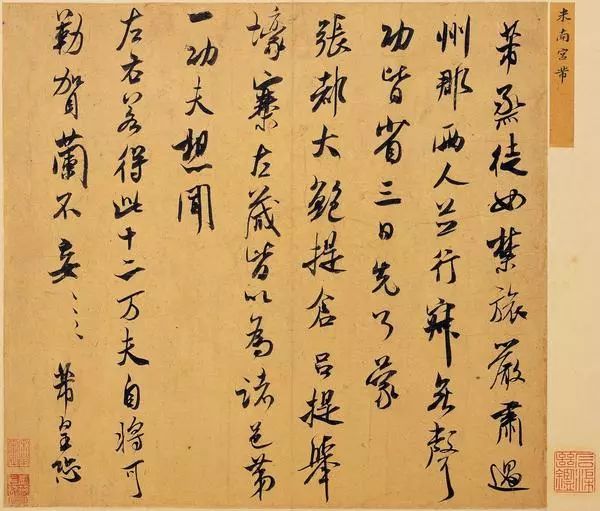 米南宫帖
芾烝徒如禁旅严肃过
州郡两人并行寂无声
功皆省三日先了蒙
张都大鲍提仓吕提举
壕寨左藏皆以为诸邑第
一功夫想闻
左右若得此十二万夫自将可
勒贺兰不妄〻〻芾皇恐